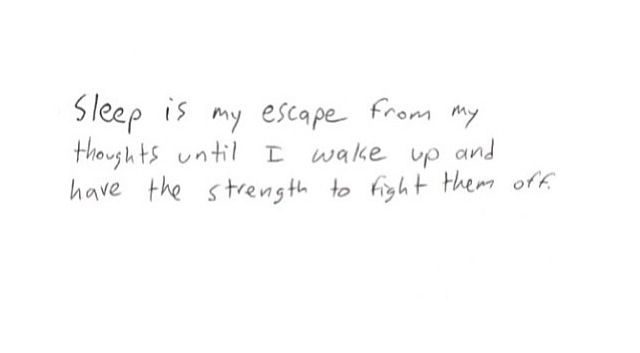 Sleep is my escape from my
thoughts until I wake up and
have the strength to fight them off.